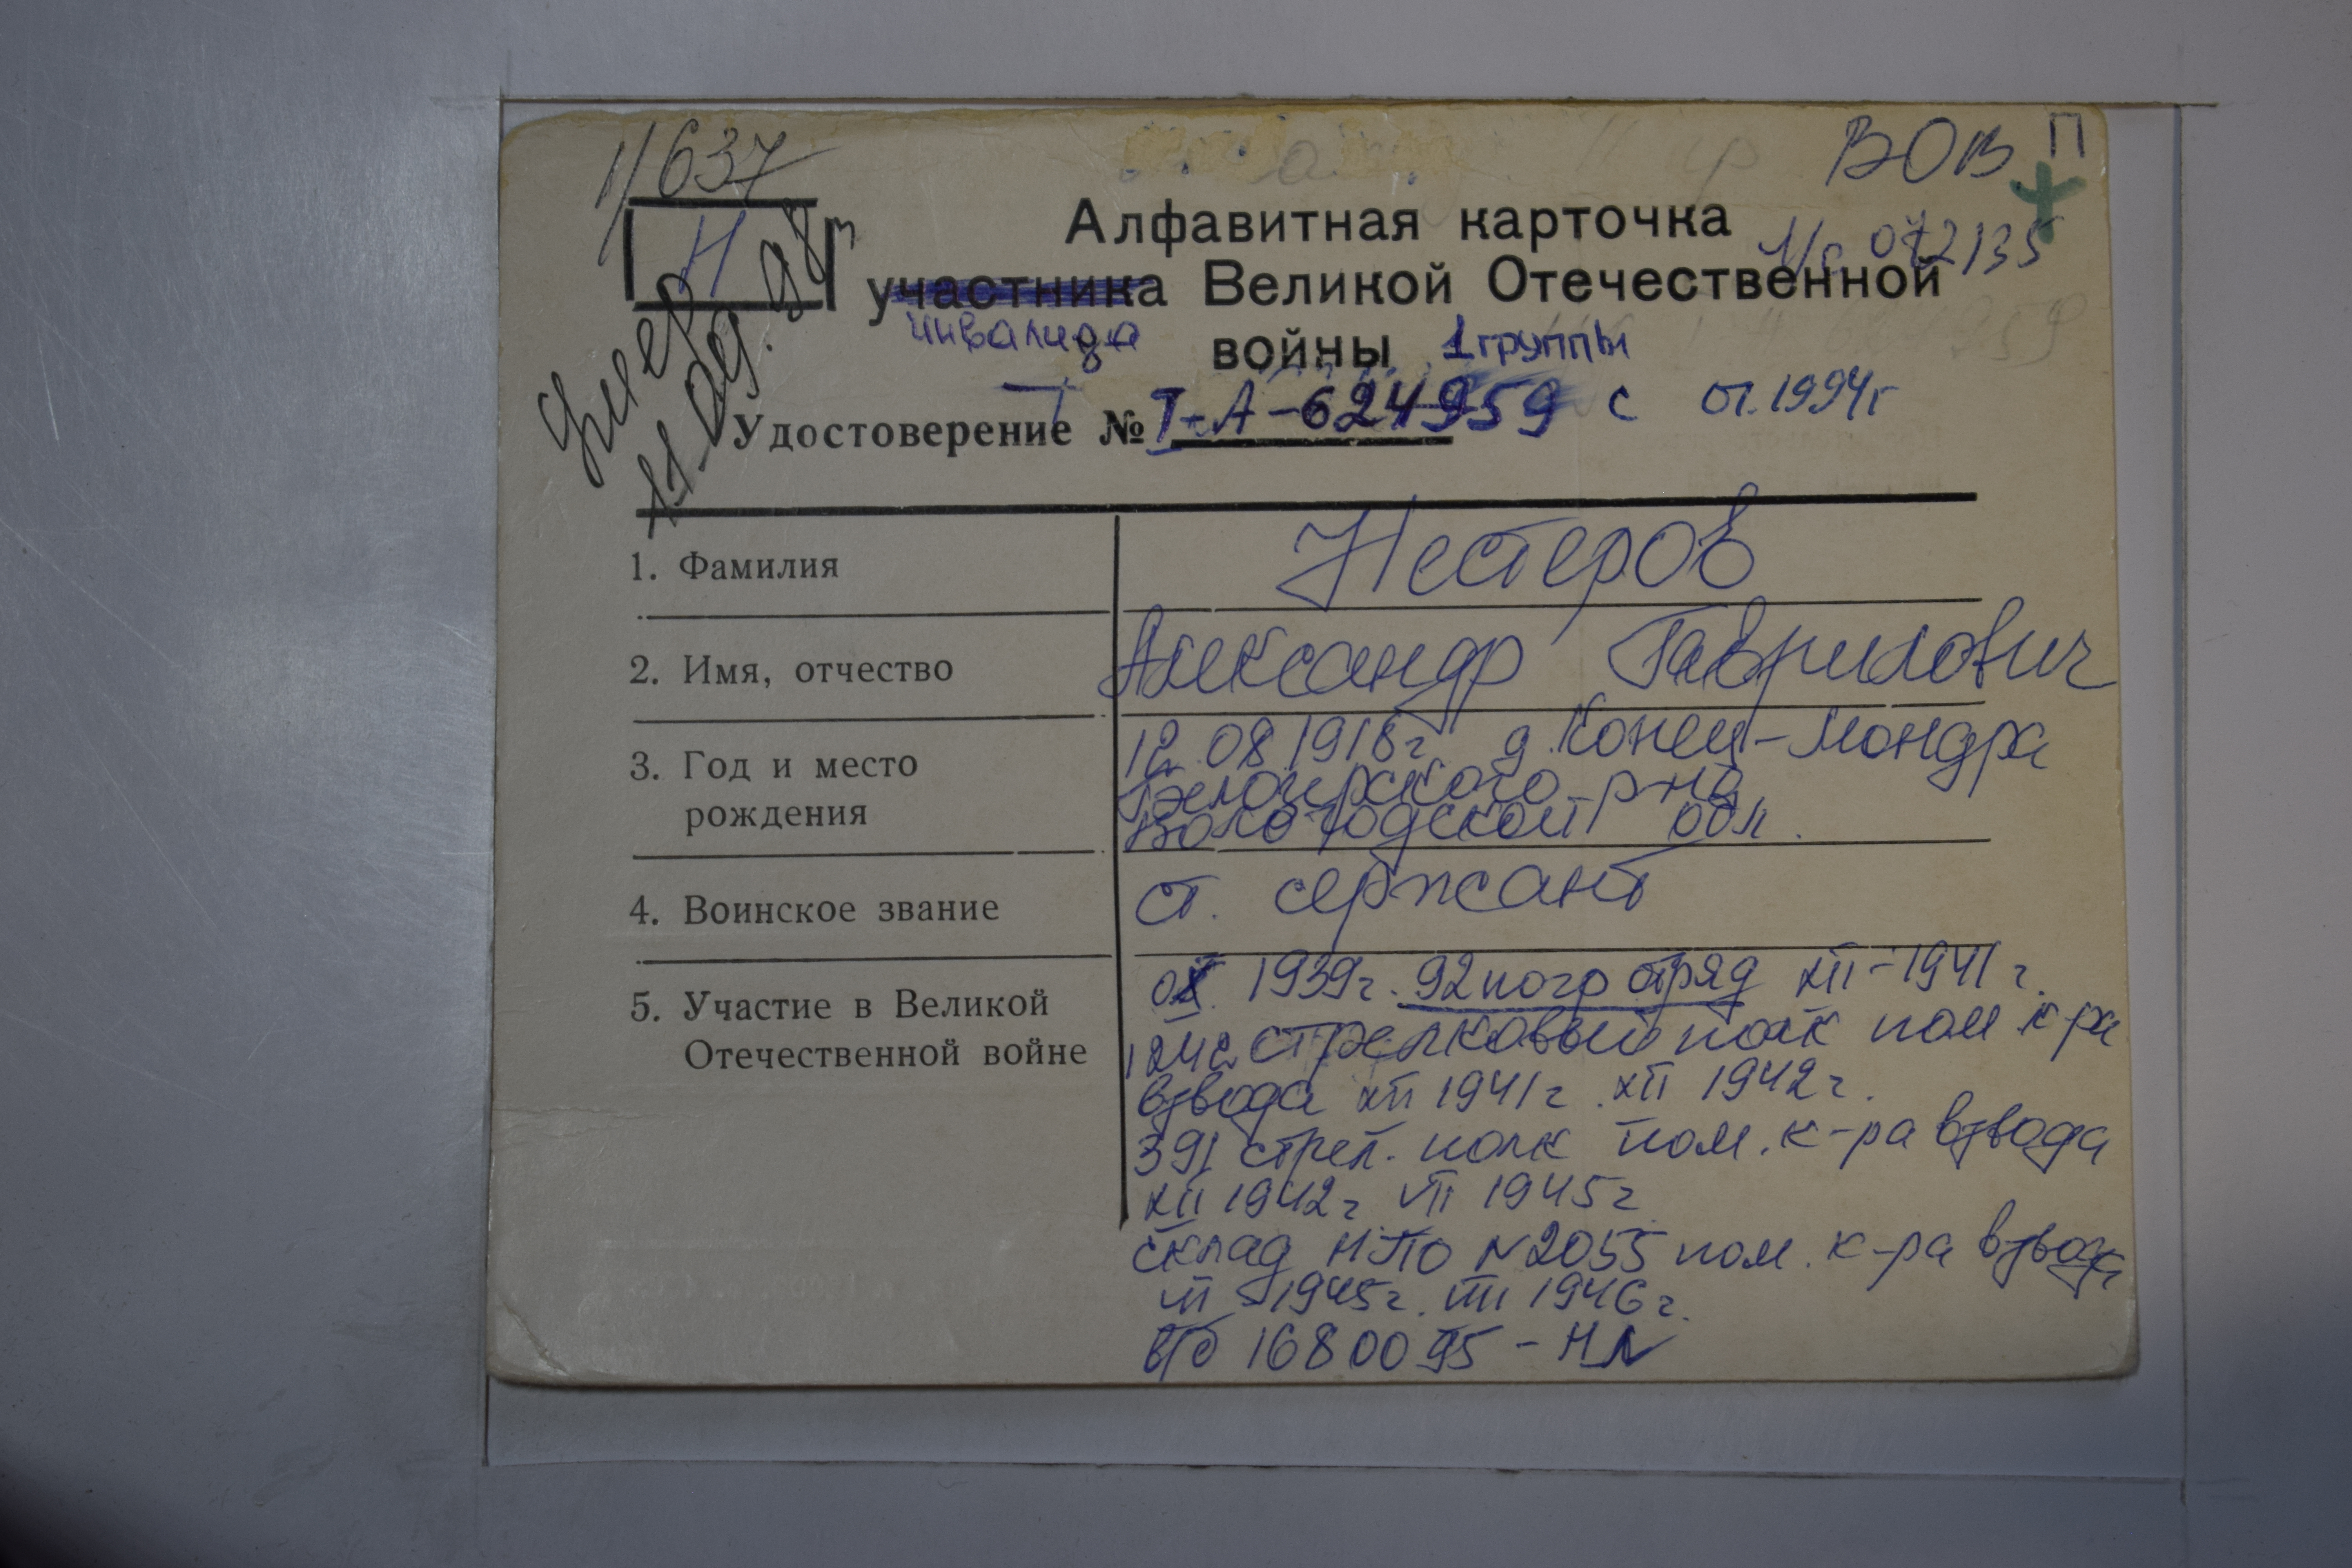 1/637
ВОВ П
Н
Алфавитная карточка
участника Великой Отечественной
инвалида
войны 1 группы
умер
11.09.98г
Удостоверение № I-А-624959 с 01.1994г
1. Фамилия Нестеров
2. Имя, отчество Александр Гаврилович
3. Год и место рождения 12.08 1918г д. Конец-Мондра
Белозерского р-на
Вологодской обл.
4. Воинское звание ст. сержант
5. Участие в Великой Отечественной войне
1939г. 92 погр отряд XII-1941г.
стрелковый полк пом к-ра
взвода XII 1941г. XII 1942г.
391 стрел. полк пом. к-ра взвода
XII 1942г VII 1945г
склад НПО №2055 пом. к-ра взвода
1945г. 1946г.
в/б 1680095-НЛ